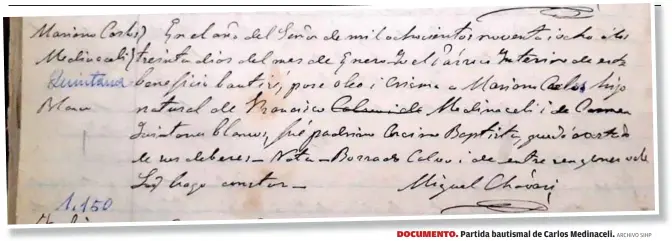 Mariano Carlos) En el año del Señor de mil ochocientos noventa i ocho a los
Medinaceli) treinta dias del mes de Enero Yo el Párroco Interino de este
Quintana beneficio bautisé, puse oleo i crisma a Mariano Carlos hijo
Blanco natural de Francisco Calvo i de Medinaceli i de Carmen
Quintana blanco, fué padrino Baptista, quedó
de sus deberes – Nota – Borrado Calvo i de entre renglones vale
Lo hago constar – Miguel Chávez
1.150
DOCUMENTO. Partida bautismal de Carlos Medinaceli. ARCHIVO SIHP